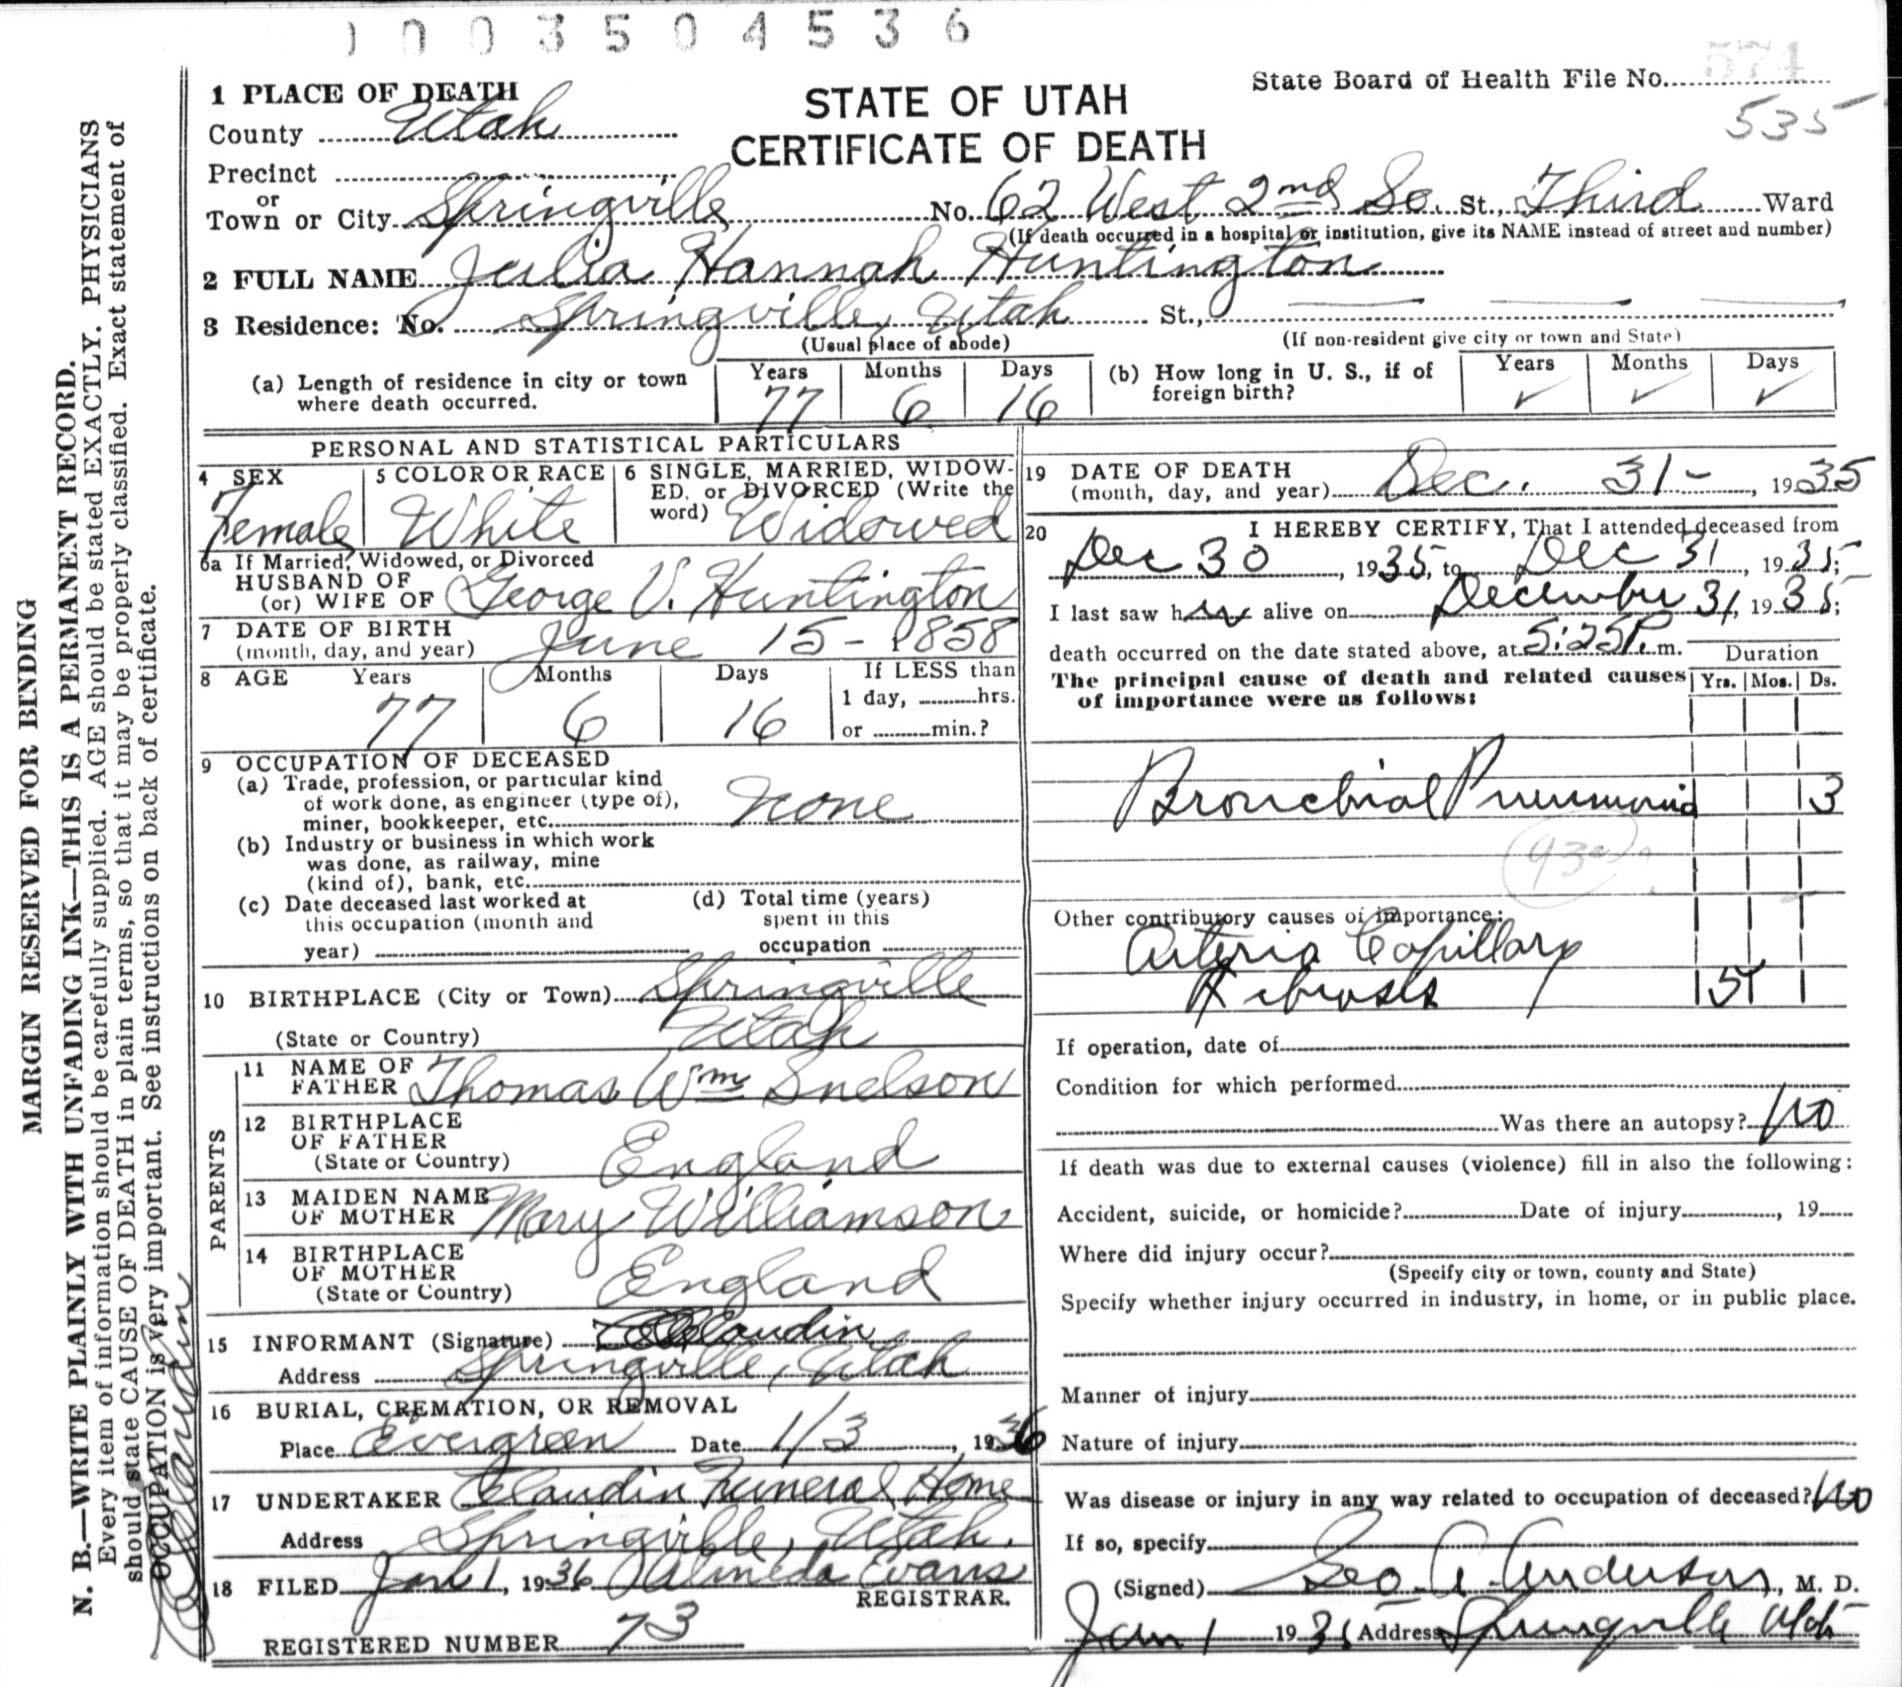 1003504536
574
State Board of Health File No.
535
STATE OF UTAH
CERTIFICATE OF DEATH
1 PLACE OF DEATH
County Utah
Precinct
or
Town or City Springville No. 62 West 2nd So. St., Third Ward
(If death occurred in a hospital or institution, give its NAME instead of street and number)
2 FULL NAME Julia Hannah Huntington
3 Residence: No. Springville, Utah St.,
(Usual place of abode) (If non-resident give city or town and State)
(a) Length of residence in city or town where death occurred. Years 77 Months 6 Days 16
(b) How long in U. S., if of foreign birth? Years ✓ Months ✓ Days ✓
PERSONAL AND STATISTICAL PARTICULARS
4 SEX Female
5 COLOR OR RACE White
6 SINGLE, MARRIED, WIDOWED, or DIVORCED (Write the word) Widowed
6a If Married, Widowed, or Divorced
HUSBAND OF
(or) WIFE OF George V. Huntington
7 DATE OF BIRTH
(month, day, and year) June 15 - 1858
8 AGE Years 77 Months 6 Days 16
If LESS than
1 day, hrs.
or min.?
9 OCCUPATION OF DECEASED
(a) Trade, profession, or particular kind
of work done, as engineer (type of),
miner, bookkeeper, etc. None
(b) Industry or business in which work
was done, as railway, mine
(kind of), bank, etc.
(c) Date deceased last worked at
this occupation (month and
year)
(d) Total time (years)
spent in this
occupation
10 BIRTHPLACE (City or Town) Springville
(State or Country) Utah
PARENTS
11 NAME OF
FATHER Thomas Wm Snelson
12 BIRTHPLACE
OF FATHER
(State or Country) England
13 MAIDEN NAME
OF MOTHER Mary Williamson
14 BIRTHPLACE
OF MOTHER
(State or Country) England
15 INFORMANT (Signature) Claudin
Address Springville, Utah
16 BURIAL, CREMATION, OR REMOVAL
Place Evergreen Date 1/3, 1936
17 UNDERTAKER Claudin Funeral Home
Address Springville, Utah.
18 FILED Jan 1, 1936 Almeda Evans
REGISTRAR.
REGISTERED NUMBER 73
19 DATE OF DEATH
(month, day, and year) Dec. 31 -, 1935
20 I HEREBY CERTIFY, That I attended deceased from
Dec 30, 1935, to Dec 31, 1935;
I last saw her alive on December 31, 1935;
death occurred on the date stated above, at 5:25P.m.
Duration
The principal cause of death and related causes Yrs. Mos. Ds.
of importance were as follows:
Bronchial Pneumonia 3
Other contributory causes of importance:
Arterio Capillary
Fibrosis
If operation, date of
Condition for which performed
Was there an autopsy? No
If death was due to external causes (violence) fill in also the following:
Accident, suicide, or homicide? Date of injury, 19
Where did injury occur?
(Specify city or town, county and State)
Specify whether injury occurred in industry, in home, or in public place.
Manner of injury
Nature of injury
Was disease or injury in any way related to occupation of deceased? No
If so, specify
(Signed) Geo. A. Anderson, M. D.
Jan 1 19 Address Springville Utah
MARGIN RESERVED FOR BINDING
N. B.—WRITE PLAINLY WITH UNFADING INK—THIS IS A PERMANENT RECORD.
Every item of information should be carefully supplied. AGE should be stated EXACTLY. PHYSICIANS
should state CAUSE OF DEATH in plain terms, so that it may be properly classified. Exact statement of
OCCUPATION is very important. See instructions on back of certificate.